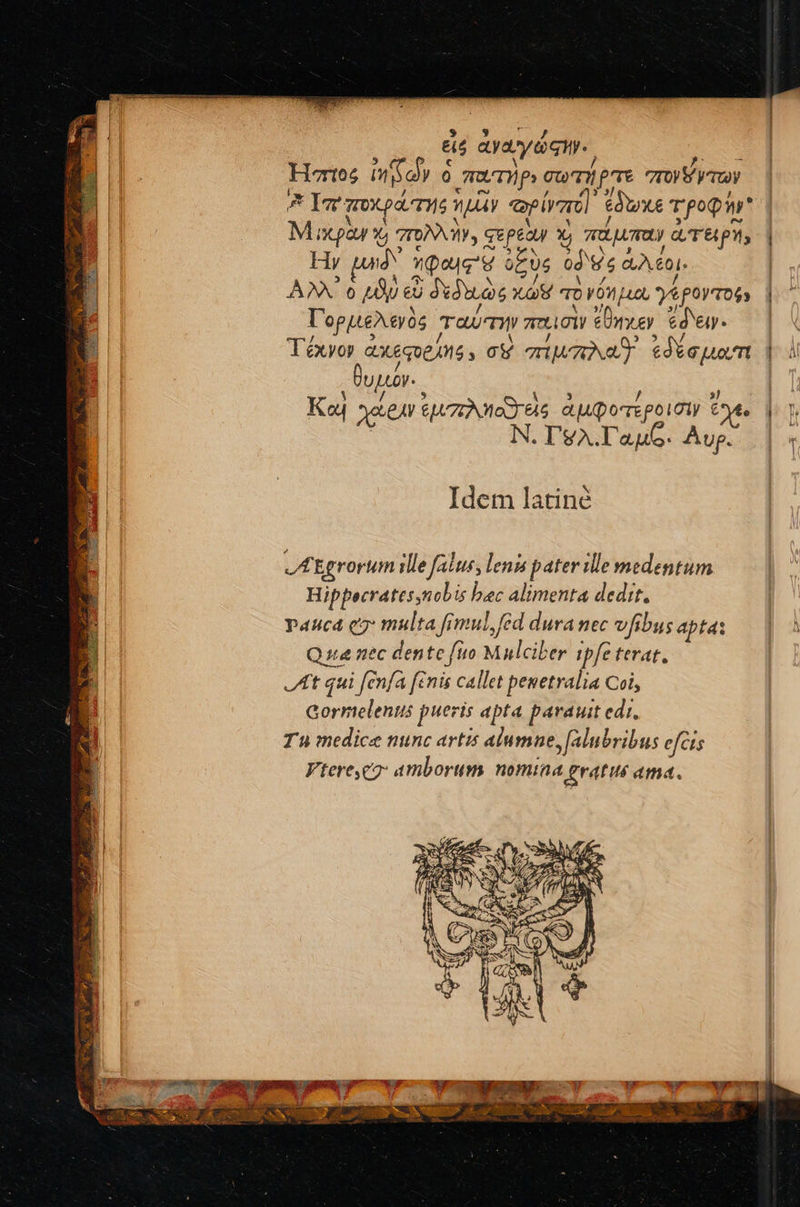 εἰς ἀναγνώστην.
Ηπιος ἰητρῶν ὁ πατὴρ, σωτήρ τε πονούντων
Ἱπποκράτης ἡμῖν ἔδωκε τροφὴν·
Μικρὰν καὶ πολλὴν, στερεὰν καὶ πάμπαν ἀτειρῆ,
Ην μηδ' ἡφαίστου ὀξὺς ὀδοὺς ἀλέοι.
Αλλ' ὁ μὲν εὖ δεδαὼς κώου τὸ νόημα γέροντος,
Γορμελενὸς ταύτην παισὶν ἔθηκεν ἔδειν.
Τέκνον ἀκεστορίης, σοῦ πίμπλαθ' ἐδέσματι
θυμόν.
Καὶ χάριν ἐμπλησθεὶς ἀμφοτέροισιν ἔχε.
Ν. Γουλ. Γαμβ. Αυρ.
Idem latinè
Ægrorum ille salus, lenis pater ille medentum
Hippocrates, nobis hæc alimenta dedit.
Pauca & multa simul, sed dura nec usibus apta:
Quæ nec dente suo Mulciber ipse terat.
At qui sensa senis callet penetralia Coi,
Gormelenus pueris apta parauit edi.
Tu medicæ nunc artis alumne, salubribus escis
Vtere, & amborum nomina gratus ama.